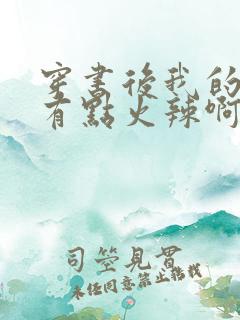 穿書後我的
有點火辣啊
司空見貫
未經同意禁止轉載